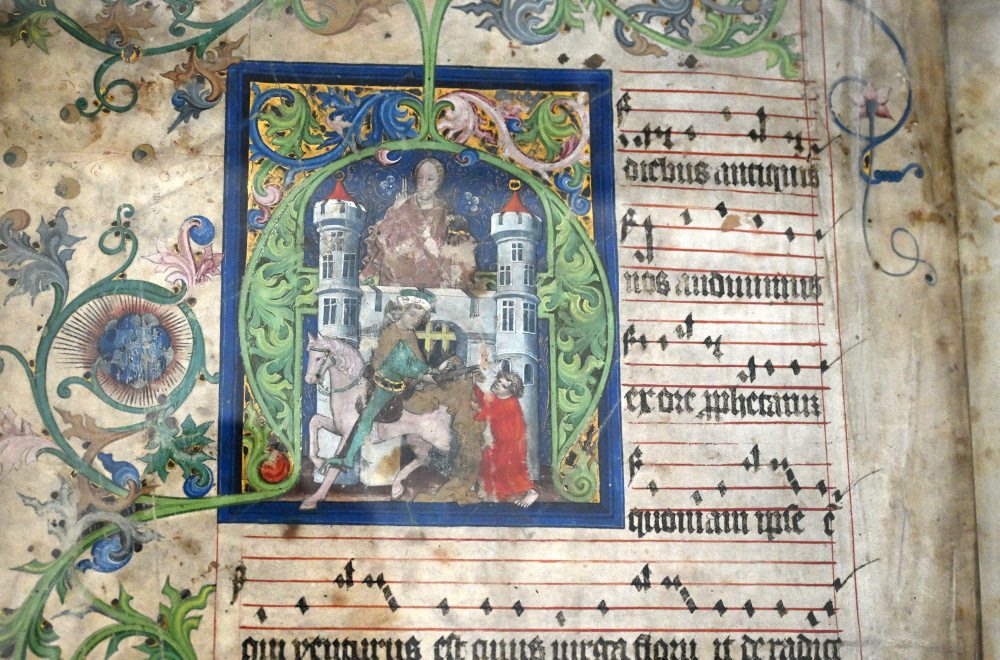 diebus antiquis
nos audiuimus
ex ore ꝓphetarum
quoniam ipse ē
qui venturus est cuius virga floru it de radice